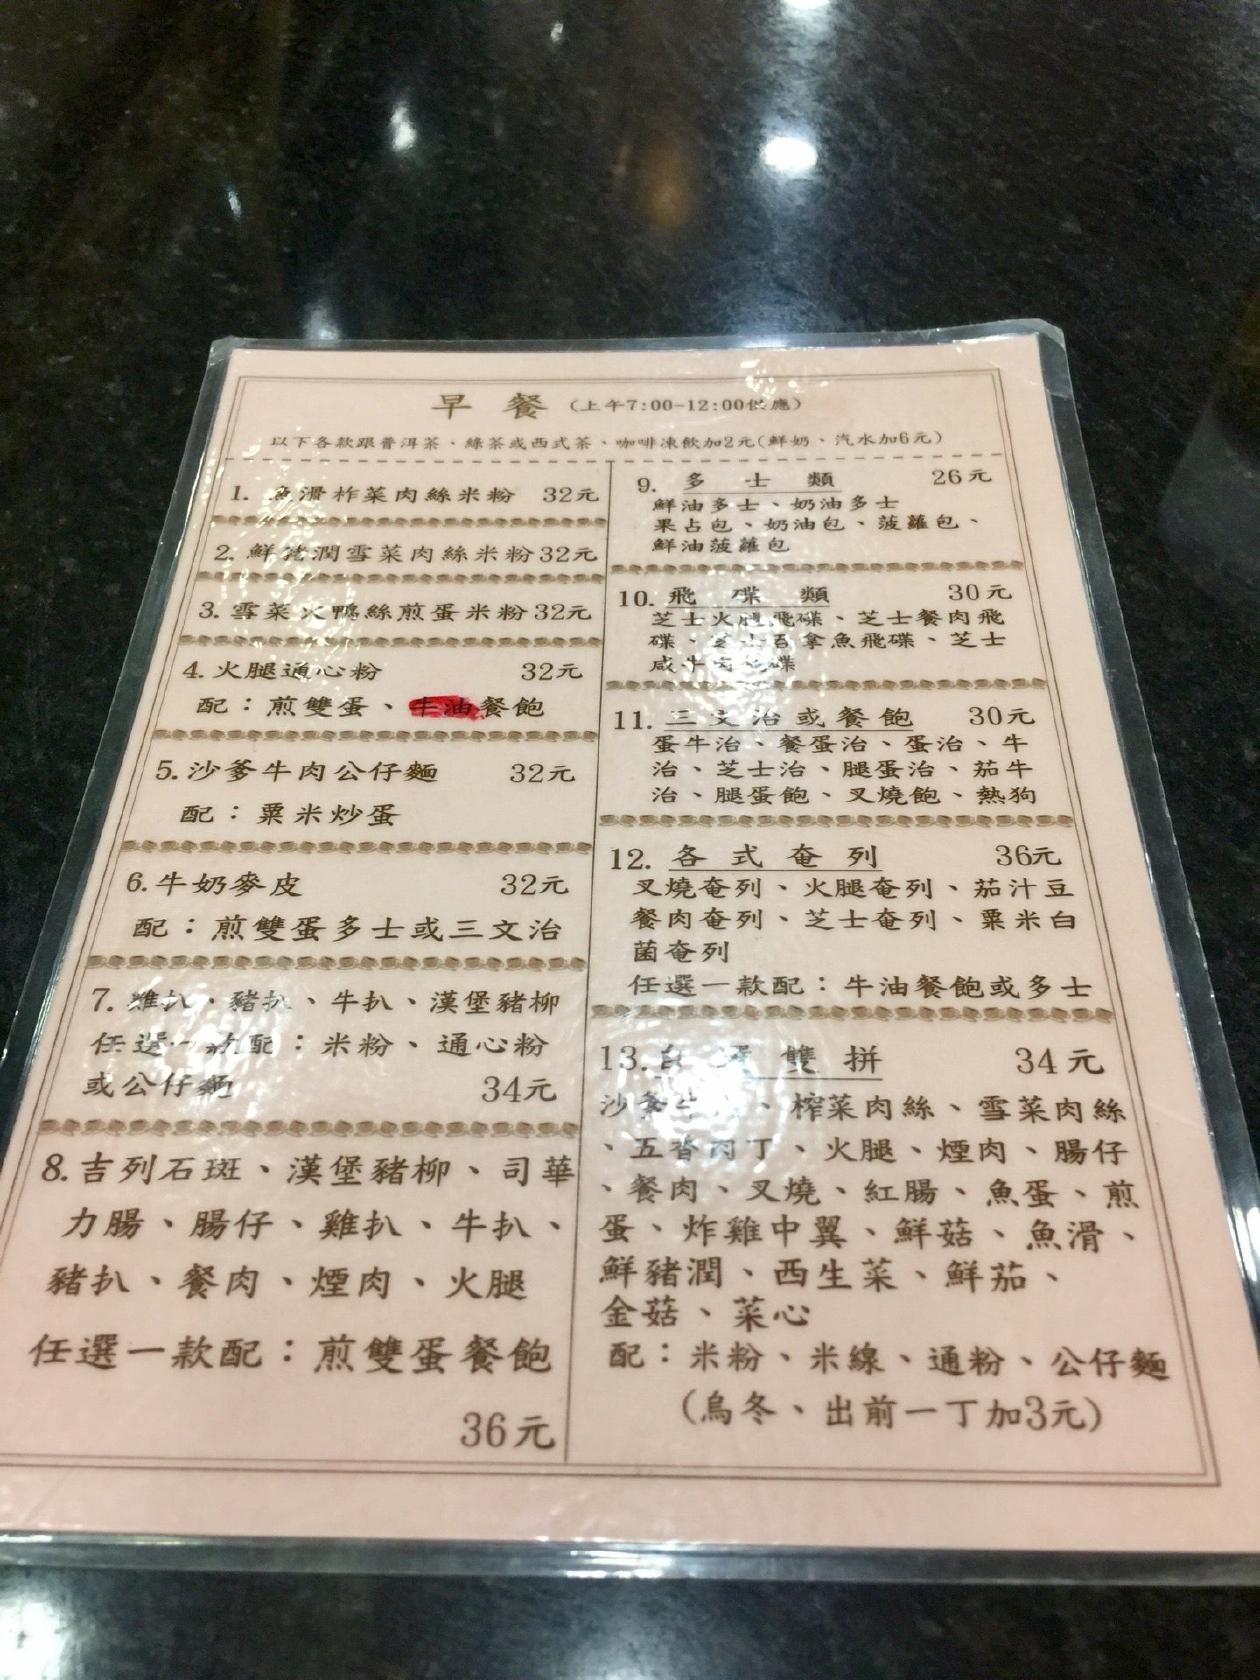 早餐(上午7:00-12:00供應)
以下各款跟普洱茶、綠茶或西式茶、咖啡凍飲加2元(鮮奶、汽水加6元)
1. 魚滑柞菜肉絲米粉 32元
2. 鮮豬潤雪菜肉絲米粉32元
3. 雪菜火鴨絲煎蛋米粉32元
4. 火腿通心粉 32元
配：煎雙蛋、牛油餐飽
5. 沙爹牛肉公仔麵 32元
配：粟米炒蛋
6. 牛奶麥皮 32元
配：煎雙蛋多士或三文治
7. 雞扒、豬扒、牛扒、漢堡豬柳
任選一款配：米粉、通心粉
或公仔麵 34元
8. 吉列石斑、漢堡豬柳、司華
力腸、腸仔、雞扒、牛扒、
豬扒、餐肉、煙肉、火腿
任選一款配：煎雙蛋餐飽
36元
9. 多士類 26元
鮮油多士、奶油多士
果占包、奶油包、菠蘿包、
鮮油菠蘿包
10. 飛碟類 30元
芝士火腿飛碟、芝士餐肉飛
碟、芝士吞拿魚飛碟、芝士
咸牛肉飛碟
11. 三文治或餐飽 30元
蛋牛治、餐蛋治、蛋治、牛
治、芝士治、腿蛋治、茄牛
治、腿蛋飽、叉燒飽、熱狗
12. 各式奄列 36元
叉燒奄列、火腿奄列、茄汁豆
餐肉奄列、芝士奄列、粟米白
菌奄列
任選一款配：牛油餐飽或多士
13. 自選雙拼 34元
沙爹牛肉、榨菜肉絲、雪菜肉絲
、五香肉丁、火腿、煙肉、腸仔
、餐肉、叉燒、紅腸、魚蛋、煎
蛋、炸雞中翼、鮮菇、魚滑、
鮮豬潤、西生菜、鮮茄、
金菇、菜心
配：米粉、米線、通粉、公仔麵
(烏冬、出前一丁加3元)